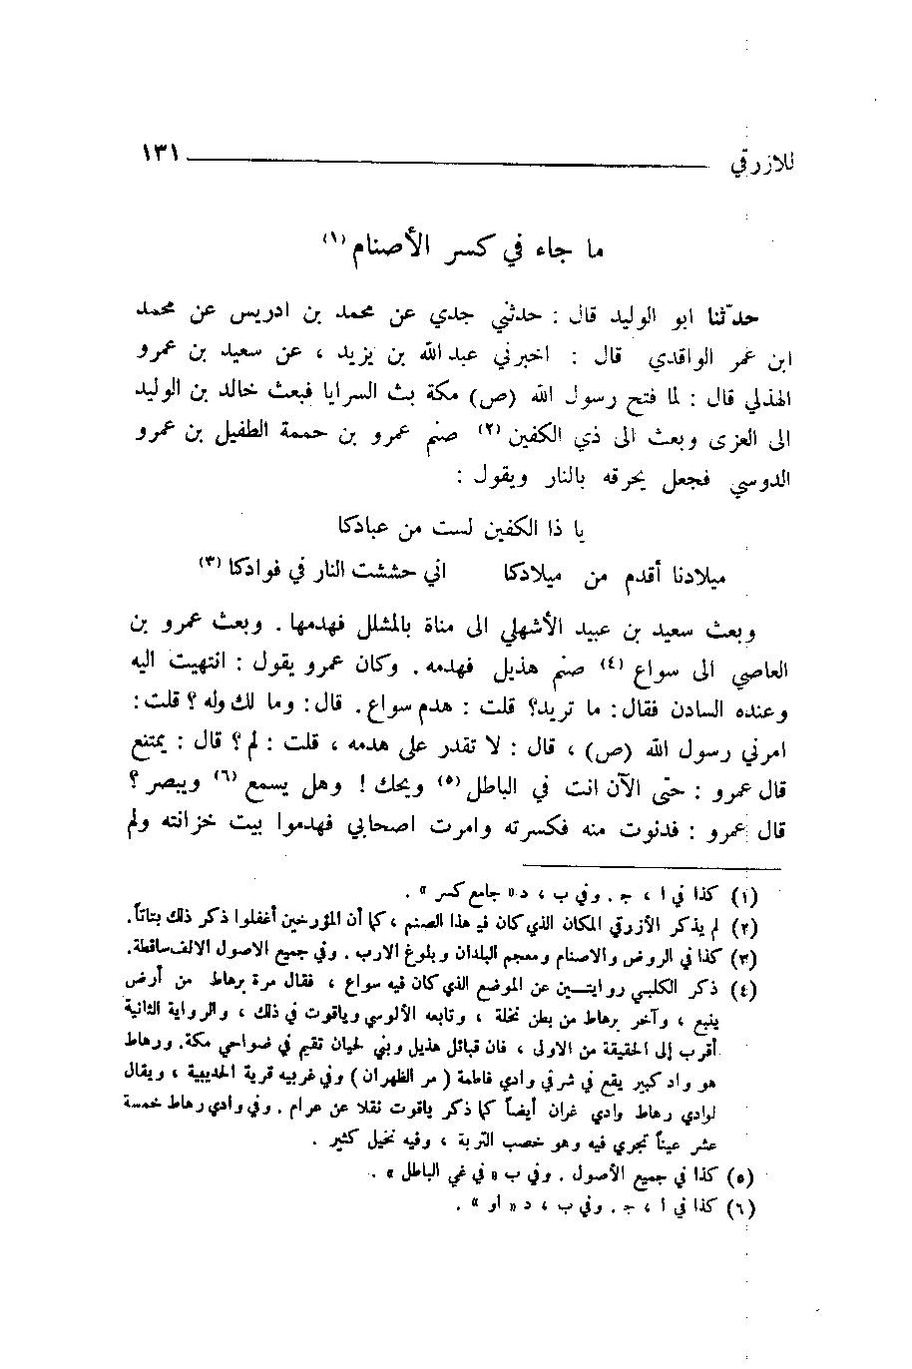 للازرقي ١٣١
ما جاء في كسر الأصنام (١)
حدّثنا ابو الوليد قال : حدثني جدي عن محمد بن ادريس عن محمد
ابن عمر الواقدي قال : اخبرني عبد الله بن يزيد ، عن سعيد بن عمرو
الهذلي قال : لما فتح رسول الله (ص) مكة بث السرايا فبعث خالد بن الوليد
الى العزى وبعث الى ذي الكفين (٢) صنم عمرو بن حممة الطفيل بن عمرو
الدوسي فجعل يحرقه بالنار ويقول :
يا ذا الكفين لست من عبادكا
ميلادنا أقدم من ميلادكا اني حششت النار في فوادكا (٣)
وبعث سعيد بن عبيد الأشهلي الى مناة بالمشلل فهدمها . وبعث عمرو بن
العاصي الى سواع (٤) صنم هذيل فهدمه . وكان عمرو يقول : انتهيت اليه
وعنده السادن فقال : ما تريد؟ قلت : هدم سواع . قال : وما لك وله ؟ قلت :
امرني رسول الله (ص) ، قال : لا تقدر على هدمه ، قلت : لم ؟ قال : يمتنع
قال عمرو : حتى الآن انت في الباطل (٥) ويحك ! وهل يسمع (٦) ويبصر ؟
قال عمرو : فدنوت منه فكسرته وامرت اصحابي فهدموا بيت خزانته ولم
(١) كذا في ا ، ج . وفي ب ، د « جامع كسر » .
(٢) لم يذكر الأزرقي المكان الذي كان فيه هذا الصنم ، كما أن المؤرخين أغفلوا ذكر ذلك بتاتاً .
(٣) كذا في الروض والاصنام ومعجم البلدان وبلوغ الارب . وفي جميع الاصول الالف ساقطة .
(٤) ذكر الكلبي روايتين عن الموضع الذي كان فيه سواع ، فقال مرة برهاط من أرض
ينبع ، وآخر برهاط من بطن نخلة ، وتابعه الألوسي وياقوت في ذلك ، والرواية الثانية
أقرب إلى الحقيقة من الاولى ، فان قبائل هذيل وبني لحيان تقيم في ضواحي مكة . ورهاط
هو واد كبير يقع في شرقي وادي فاطمة ( مر الظهران ) وفي غربيه قرية الحديبية ، ويقال
لوادي رهاط وادي غران أيضاً كما ذكر ياقوت نقلا عن عرام . وفي وادي رهاط خمسة
عشر عيناً تجري فيه وهو خصب التربة ، وفيه نخيل كثير .
(٥) كذا في جميع الأصول . وفي ب « في غي الباطل » .
(٦) كذا في ا ، ج . وفي ب ، د « او » .